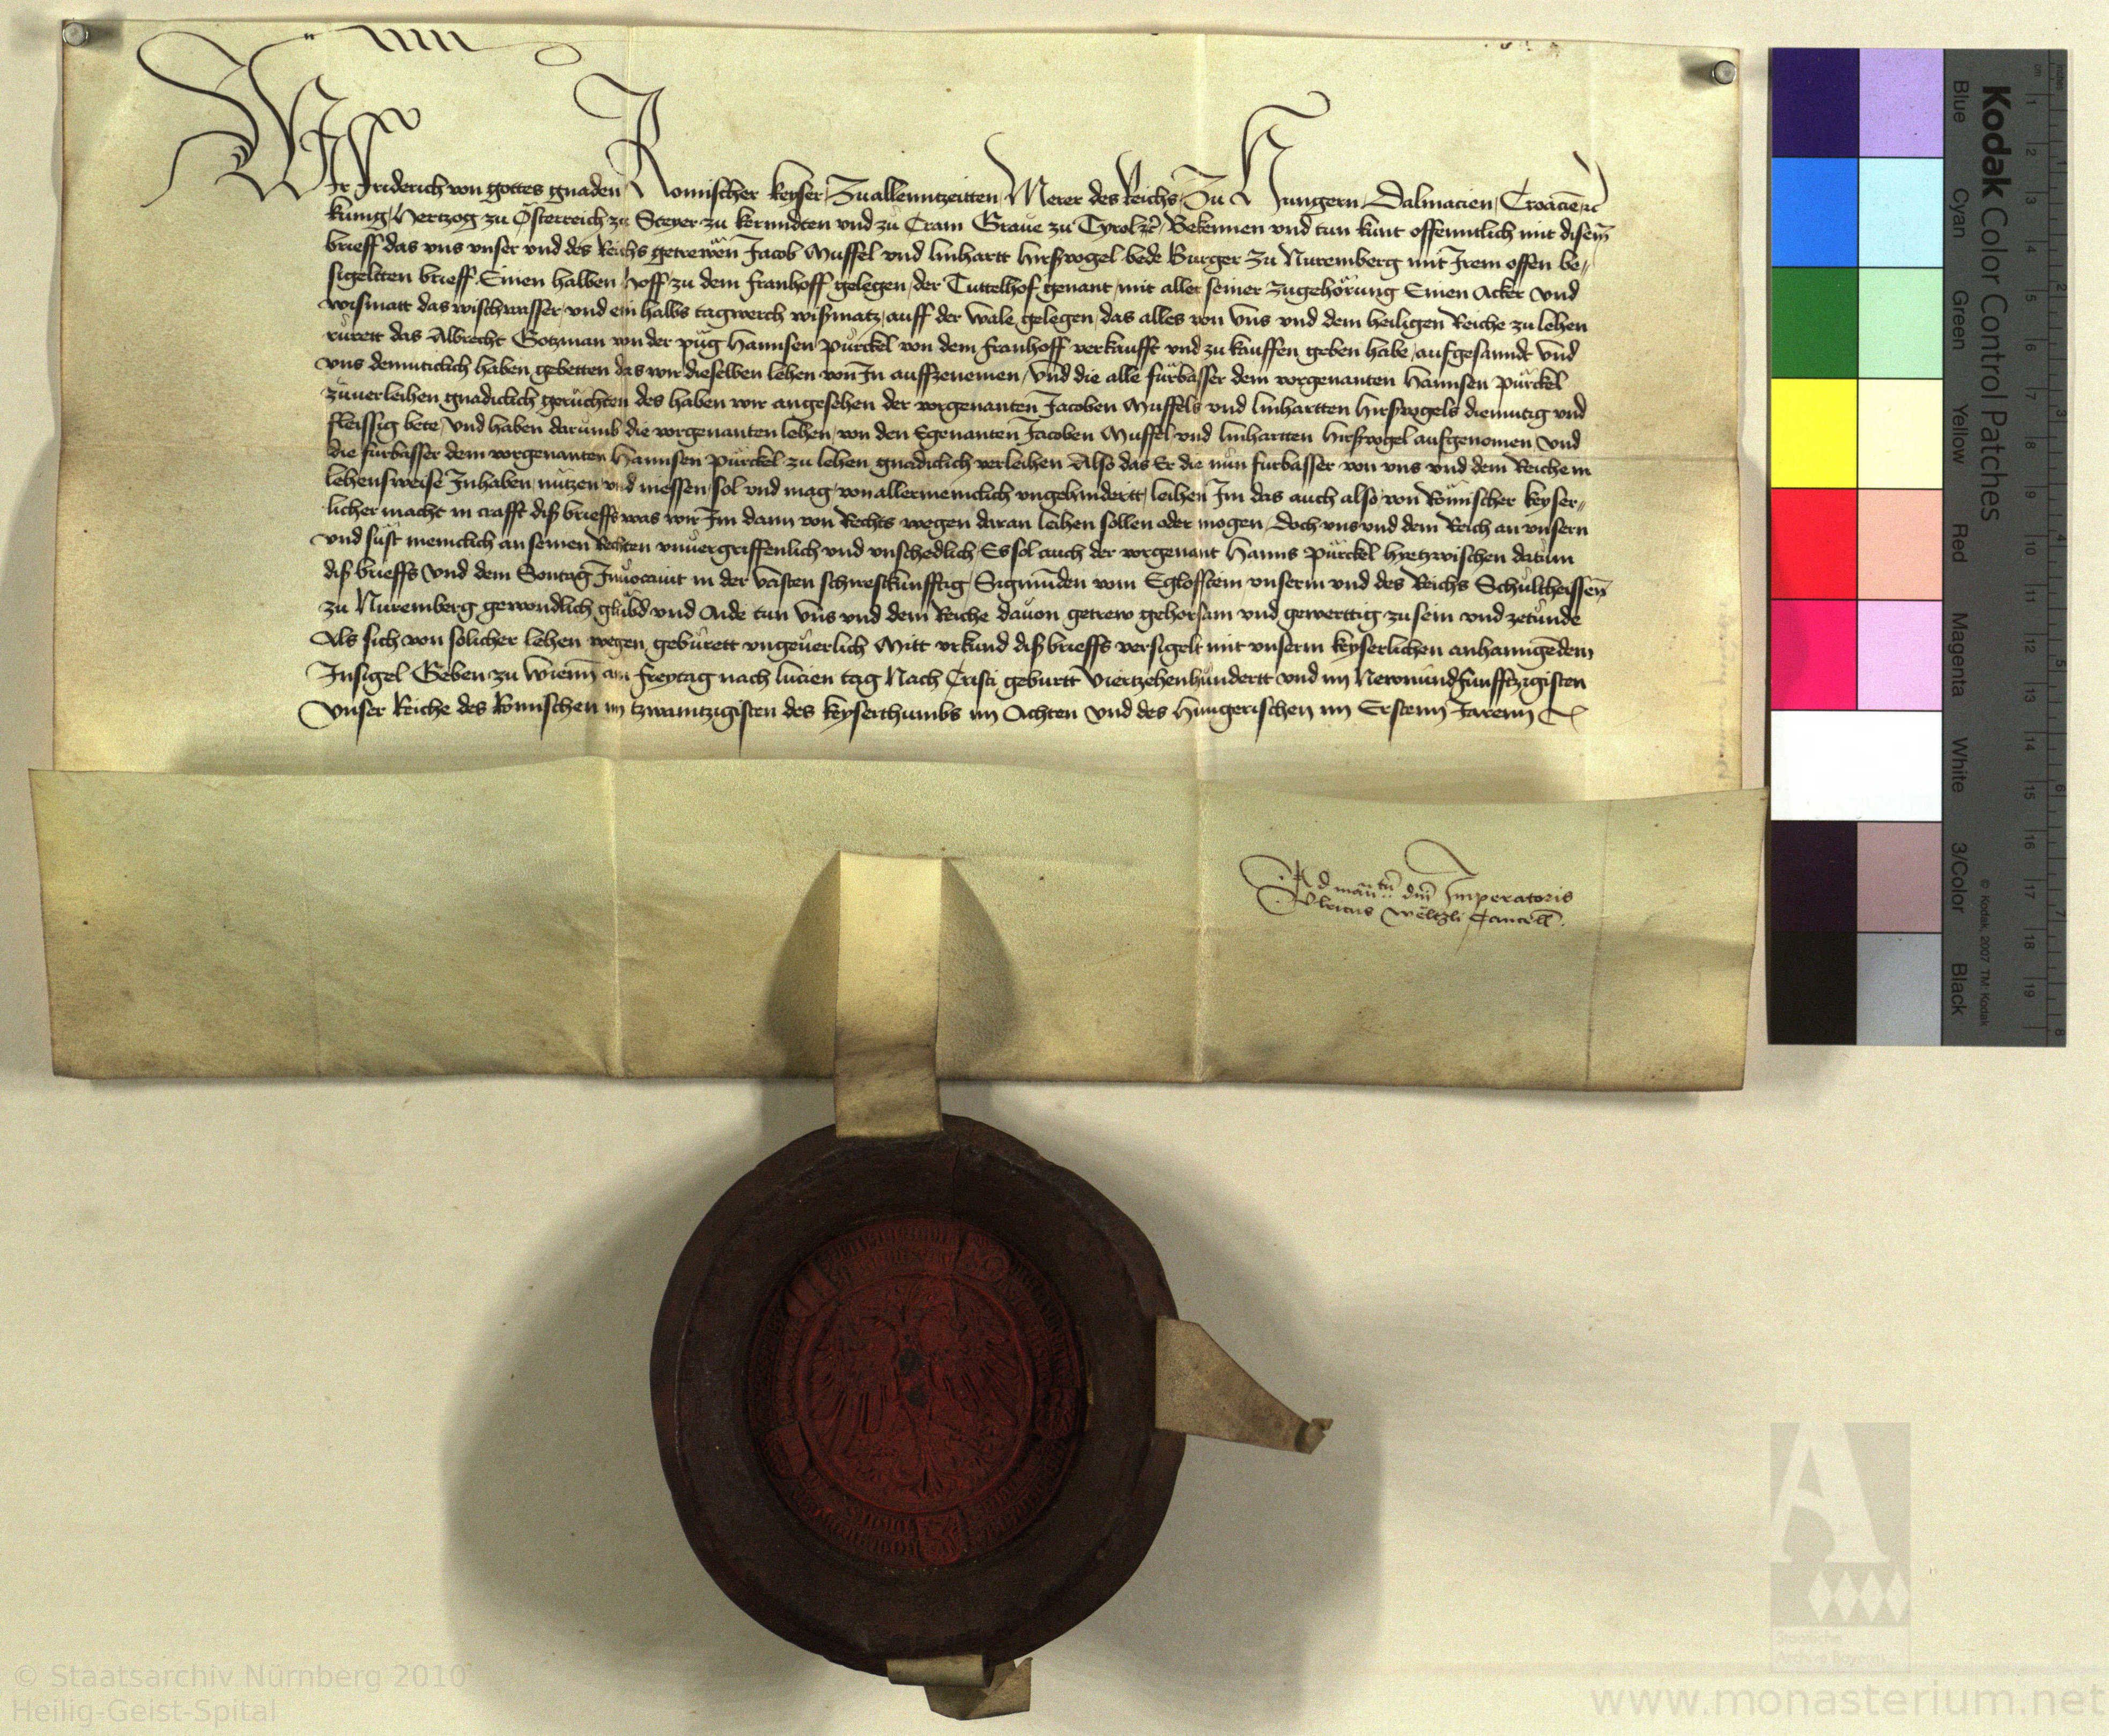 Wir Friderich von gottes gnaden Romischer keyser, Zuallenntzeitten Merer des Reichs, Zu Hungern Dalmacien, Croacien ꝛc
kunig, Hertzog zu Österreich zu Steyer zu kernndten und zu Crain Graue zu Tyrol ꝛc Bekennen und tun kunt offenntlich mit disem̄
brieff das vns vnser vnd des Reichs getrewen Jacob Muffel vnd linhartt hirßvogel bede Burger zu Nuremberg mit Irem offen be„
sigeltten brieff Einen halben hoff zu dem franhoff gelegen, der Tuttelhof genant mit aller seiner zugehörung Einen Acker vnd
wismatt das wischwasser, vnd ein halbs tagwerch wißmatz, auff der wale gelegen, das alles von vns vnd dem heiligen Reiche zu lehen
rürett das Albrecht Gotzman von der püg Hannsen pürckel von dem franhoff verkaufft vnd zu kauffen geben habe, aufgesanndt vnd
vns demuticlich haben gebetten das wir dieselben lehen von In auffzenemen, vnd die alle fürbasser dem vorgenanten Hannsen pürckel
züuerleihen gnadiclich gerüchten des haben wir angesehen der vorgenanten Jacoben Muffels vnd linhartten hirßvogels diemutig vnd
fleissig bete, vnd haben darumb die vorgenanten lehen, von den Egenanten Jacoben Muffel vnd linhartten hirßvogel aufgenomen vnd
die fürbasser dem vorgenanten Hannsen pürckel zu lehen gnediclich verleihen Also das Er die nün fürbasser von vns vnd dem Reiche in
lehensweise Inhaben, nützen vnd niessen, sol vnd mag, von allermeniclich vngehindertt, leihen Im das auch also von Römischer keyser„
licher macht in crafft diß brieffs was wir Im dann von Rechts wegen daran leihen sollen oder mogen, doch vns vnd dem Reich an vnsern
vnd süst meniclich an seinen Rechten vnuergriffenlich vnd vnschedlich Es sol auch der vorgenant Hanns pürckel hyetzwischen datum
diß brieffs vnd dem Sontag Inuocauit in der vasten schirestkunfftig, Sigmunden vom Egloffstein vnserm vnd des Reichs Schultheissen̄
zu Nuremberg gewondlich glübd vnd Aide tun vns vnd dem Reiche dauon getrew gehorsam vnd gewerttig zu sein vnd zetunde
Als sich von solicher lehen wegen gebürett vngeuerlich Mitt vrkund diß brieffs versigelt mit vnserm keyserlichen anhanngēdem
Insigel Geben zu wienn̄ am freytag nach lucien tag Nach Cristi geburtt viertzehenhundertt vnd im Newnundfunfftzigisten
vnser Reiche des Römischen im tzwaintzigisten des keyserthumbs im Achten vnd des hungerischen im Ersten Jarenn
Ad manᵗū dn̄i Imperatoris
Vlricus wëltzli Cancell̄.
Kodak Color Control Patches
Blue Cyan Green Yellow Red Magenta White 3/Color Black
© Kodak, 2007 TM: Kodak
© Staatsarchiv Nürnberg 2010
Heilig-Geist-Spital
www.monasterium.net